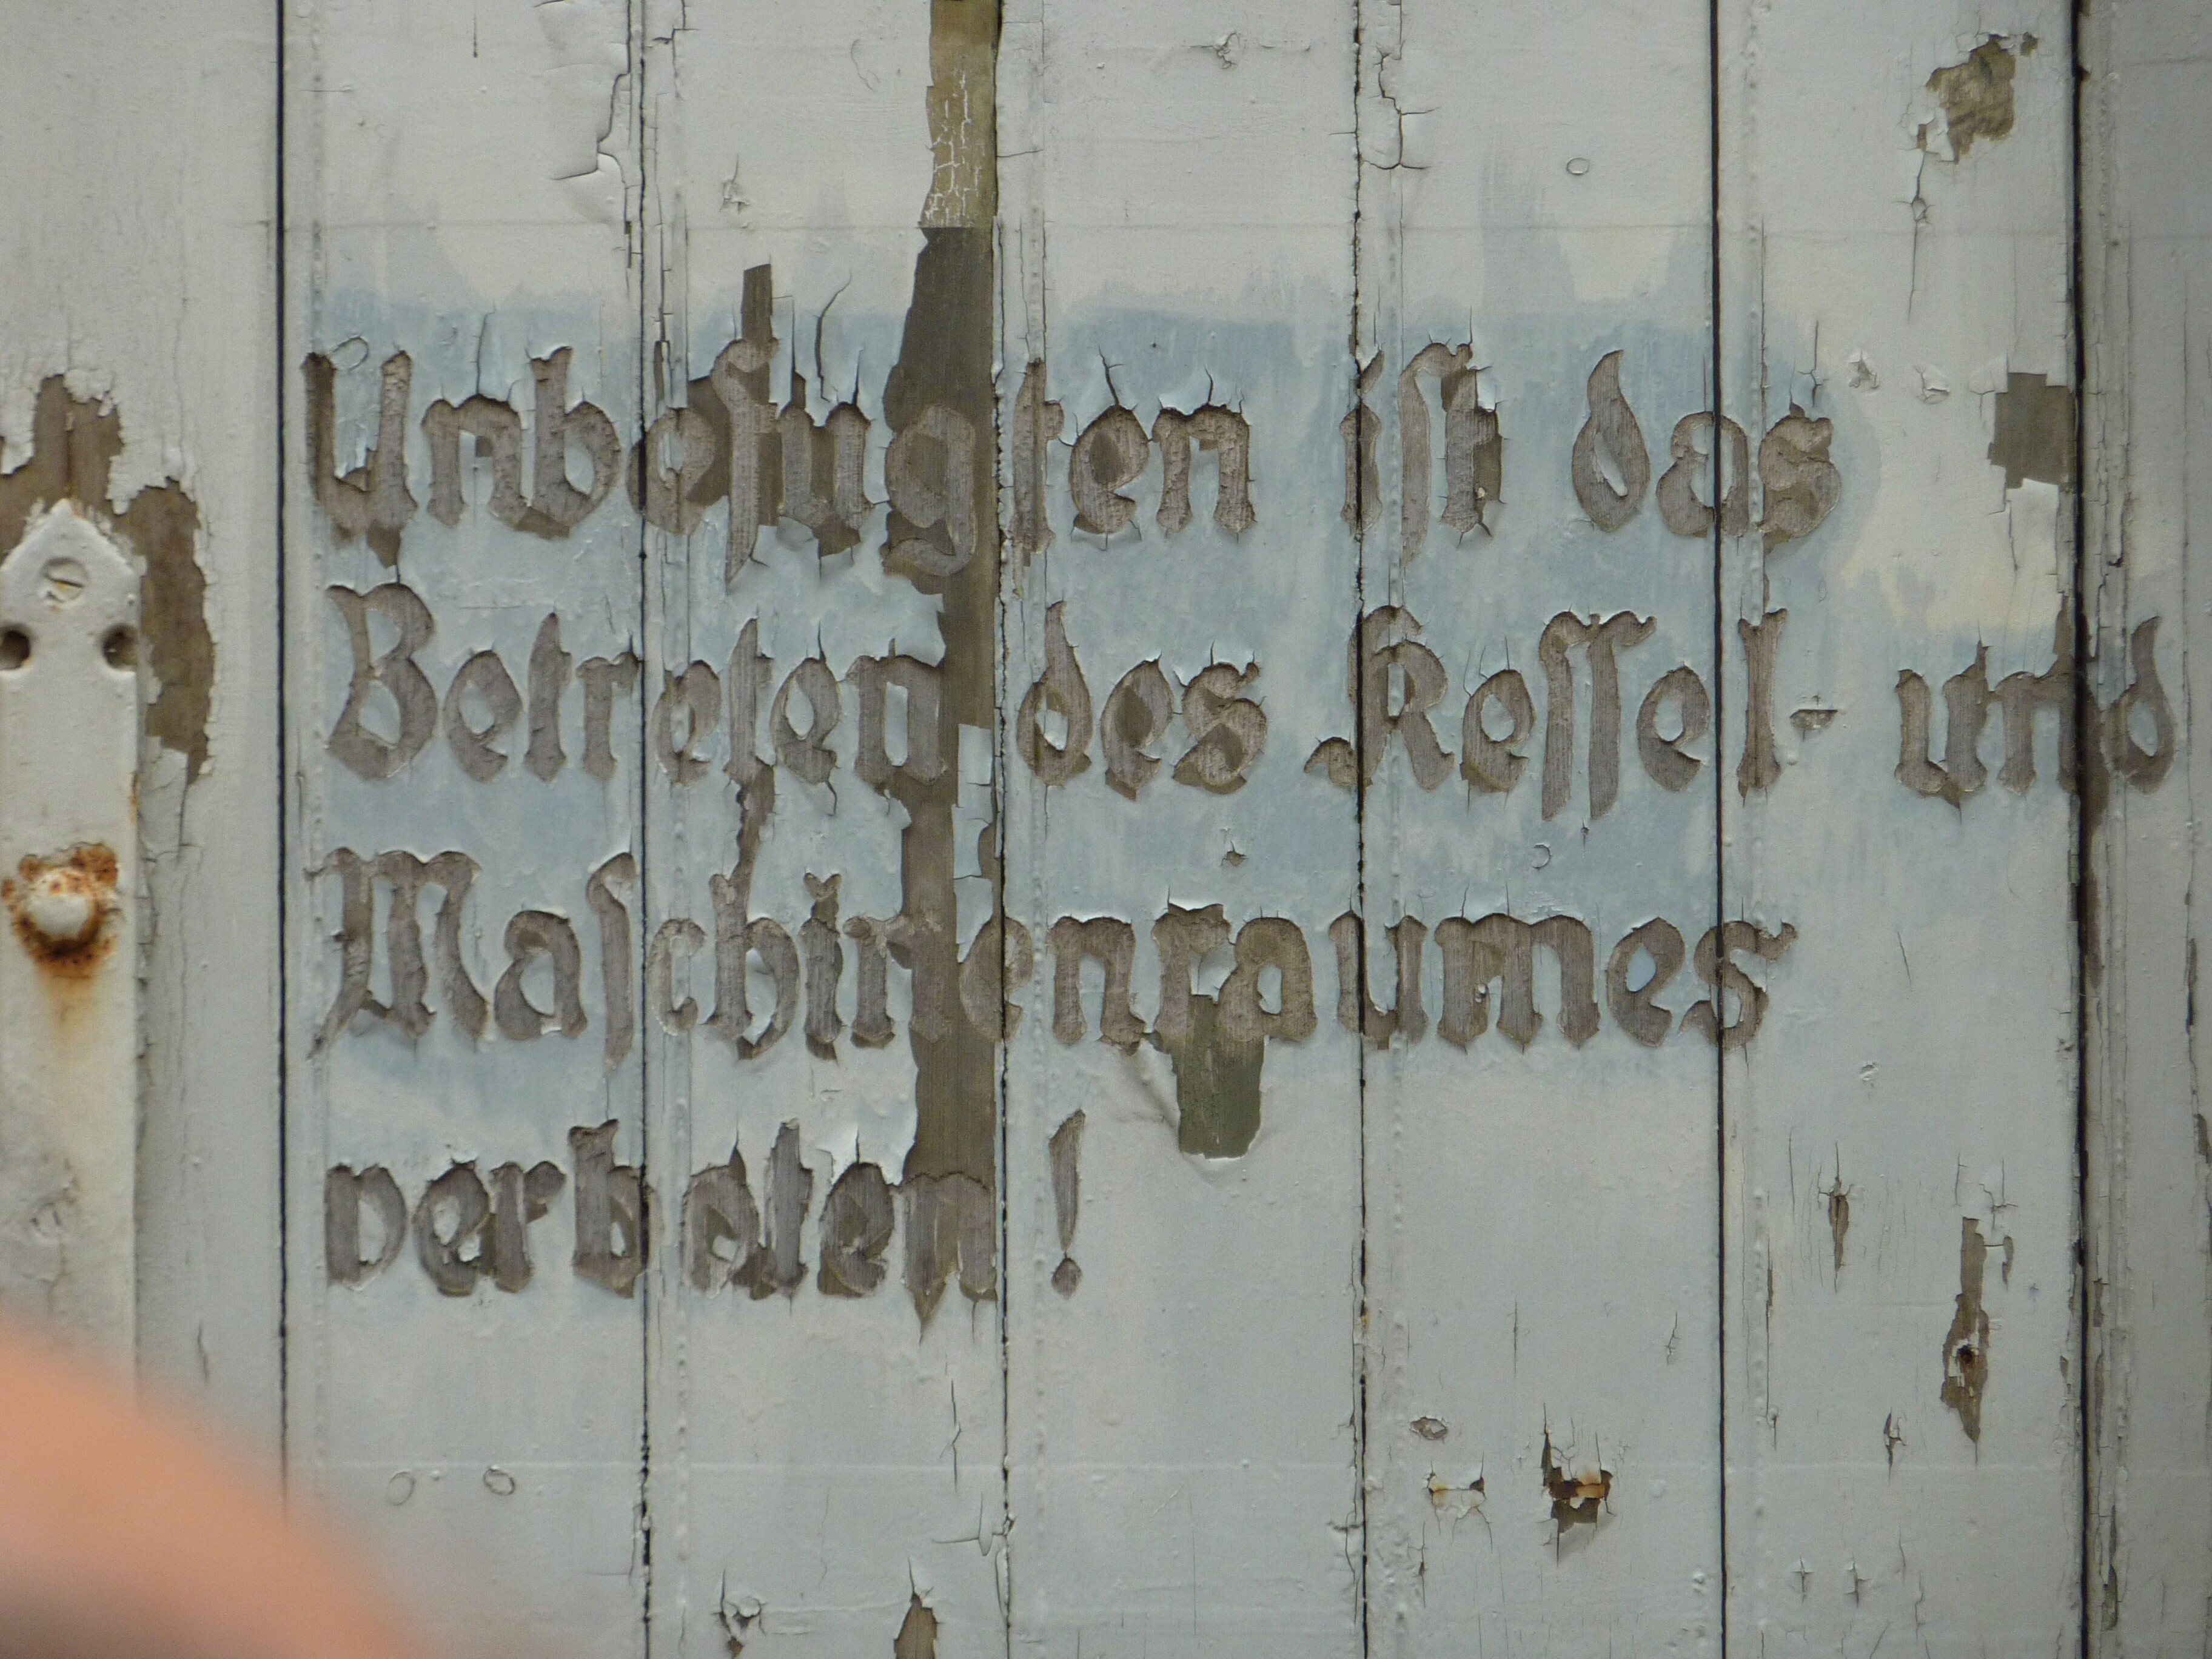 Unbefugten iſt das
Betreten des Keſſel- und
Maſchinenraumes
verboten!